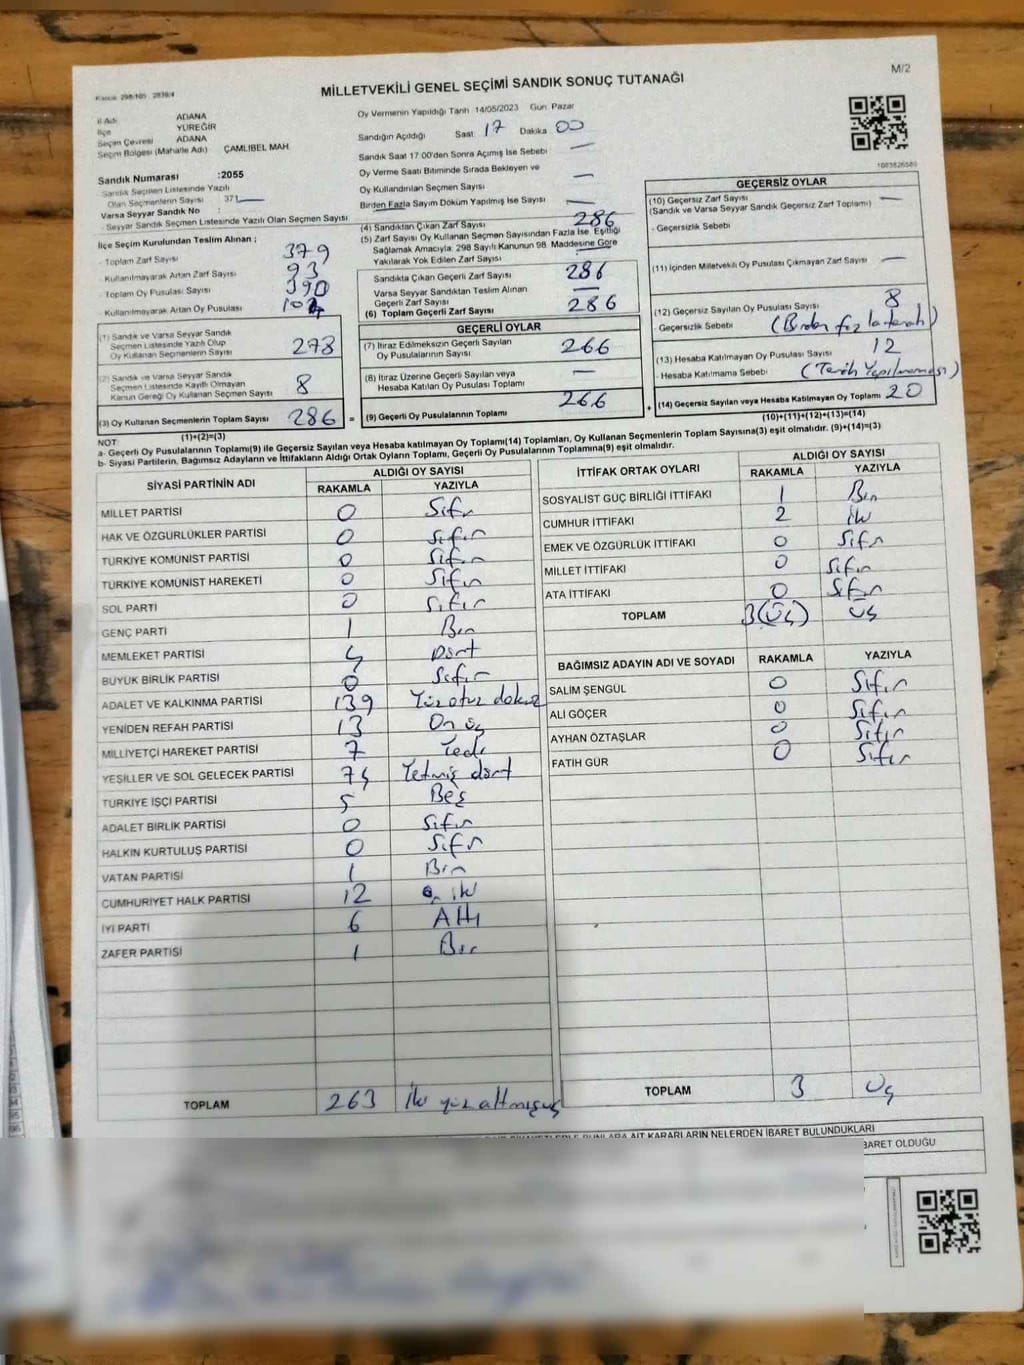 M/2
Kanun 298/105 . 2839/4
MİLLETVEKİLİ GENEL SEÇİMİ SANDIK SONUÇ TUTANAĞI
İl Adı ADANA
İlçe YÜREĞİR
Seçim Çevresi ADANA
Seçim Bölgesi (Mahalle Adı) ÇAMLIBEL MAH.
Sandık Numarası :2055
Sandık Seçmen Listesinde Yazılı
Olan Seçmenlerin Sayısı 371
Varsa Seyyar Sandık No :
- Seyyar Sandık Seçmen Listesinde Yazılı Olan Seçmen Sayısı
İlçe Seçim Kurulundan Teslim Alınan ;
- Toplam Zarf Sayısı 379
- Kullanılmayarak Artan Zarf Sayısı 93
- Toplam Oy Pusulası Sayısı 390
- Kullanılmayarak Artan Oy Pusulası
(1) Sandık ve Varsa Seyyar Sandık
Seçmen Listesinde Yazılı Olup
Oy Kullanan Seçmenlerin Sayısı 278
(2) Sandık ve Varsa Seyyar Sandık
Seçmen Listesinde Kayıtlı Olmayan
Kanun Gereği Oy Kullanan Seçmen Sayısı 8
(3) Oy Kullanan Seçmenlerin Toplam Sayısı 286 =
(1)+(2)=(3)
Oy Vermenin Yapıldığı Tarih 14/05/2023 Gün Pazar
Sandığın Açıldığı Saat 17 Dakika 00
Sandık Saat 17:00'den Sonra Açılmış İse Sebebi —
Oy Verme Saati Bitiminde Sırada Bekleyen ve
Oy Kullandırılan Seçmen Sayısı —
Birden Fazla Sayım Döküm Yapılmış İse Sayısı —
(4) Sandıktan Çıkan Zarf Sayısı 286
(5) Zarf Sayısı Oy Kullanan Seçmen Sayısından Fazla İse, Eşitliği
Sağlamak Amacıyla, 298 Sayılı Kanunun 98. Maddesine Göre
Yakılarak Yok Edilen Zarf Sayısı —
Sandıkta Çıkan Geçerli Zarf Sayısı 286
Varsa Seyyar Sandıktan Teslim Alınan
Geçerli Zarf Sayısı —
(6) Toplam Geçerli Zarf Sayısı 286
GEÇERLİ OYLAR
(7) İtiraz Edilmeksizin Geçerli Sayılan
Oy Pusulalarının Sayısı 266
(8) İtiraz Üzerine Geçerli Sayılan veya
Hesaba Katılan Oy Pusulası Toplamı —
(9) Geçerli Oy Pusulalarının Toplamı 266 +
1083826580
GEÇERSİZ OYLAR
(10) Geçersiz Zarf Sayısı —
(Sandık ve Varsa Seyyar Sandık Geçersiz Zarf Toplamı)
- Geçersizlik Sebebi
(11) İçinden Milletvekili Oy Pusulası Çıkmayan Zarf Sayısı —
(12) Geçersiz Sayılan Oy Pusulası Sayısı 8
- Geçersizlik Sebebi
(13) Hesaba Katılmayan Oy Pusulası Sayısı 12
- Hesaba Katılmama Sebebi (Tercih Yapılmaması)
(14) Geçersiz Sayılan veya Hesaba Katılmayan Oy Toplamı 20
(10)+(11)+(12)+(13)=(14)
NOT
a- Geçerli Oy Pusulalarının Toplamı(9) ile Geçersiz Sayılan veya Hesaba katılmayan Oy Toplamı(14) Toplamları, Oy Kullanan Seçmenlerin Toplam Sayısına(3) eşit olmalıdır. (9)+(14)=(3)
b- Siyasi Partilerin, Bağımsız Adayların ve İttifakların Aldığı Ortak Oyların Toplamı, Geçerli Oy Pusulalarının Toplamına(9) eşit olmalıdır.
SİYASİ PARTİNİN ADI ALDIĞI OY SAYISI
RAKAMLA YAZIYLA
MİLLET PARTİSİ 0 Sıfır
HAK VE ÖZGÜRLÜKLER PARTİSİ 0 Sıfır
TÜRKİYE KOMÜNİST PARTİSİ 0 Sıfır
TÜRKİYE KOMÜNİST HAREKETİ 0 Sıfır
SOL PARTİ 0 Sıfır
GENÇ PARTİ 1 Bir
MEMLEKET PARTİSİ 4 Dört
BÜYÜK BİRLİK PARTİSİ 0 Sıfır
ADALET VE KALKINMA PARTİSİ 139 Yüz otuz dokuz
YENİDEN REFAH PARTİSİ 13 On üç
MİLLİYETÇİ HAREKET PARTİSİ 7 Yedi
YEŞİLLER VE SOL GELECEK PARTİSİ 74 Yetmiş dört
TÜRKİYE İŞÇİ PARTİSİ 5 Beş
ADALET BİRLİK PARTİSİ 0 Sıfır
HALKIN KURTULUŞ PARTİSİ 0 Sıfır
VATAN PARTİSİ 1 Bir
CUMHURİYET HALK PARTİSİ 12 On iki
İYİ PARTİ 6 Altı
ZAFER PARTİSİ 1 Bir
TOPLAM 263 İki yüz altmışüç
İTTİFAK ORTAK OYLARI ALDIĞI OY SAYISI
RAKAMLA YAZIYLA
SOSYALİST GÜÇ BİRLİĞİ İTTİFAKI 1 Bir
CUMHUR İTTİFAKI 2 iki
EMEK VE ÖZGÜRLÜK İTTİFAKI 0 Sıfır
MİLLET İTTİFAKI 0 Sıfır
ATA İTTİFAKI 0 Sıfır
TOPLAM 3(Üç) Üç
BAĞIMSIZ ADAYIN ADI VE SOYADI RAKAMLA YAZIYLA
SALİM ŞENGÜL 0 Sıfır
ALİ GÖÇER 0 Sıfır
AYHAN ÖZTAŞLAR 0 Sıfır
FATİH GÜR 0 Sıfır
TOPLAM 3 Üç
KARARLARIN NELERDEN İBARET BULUNDUKLARI
İBARET OLDUĞU